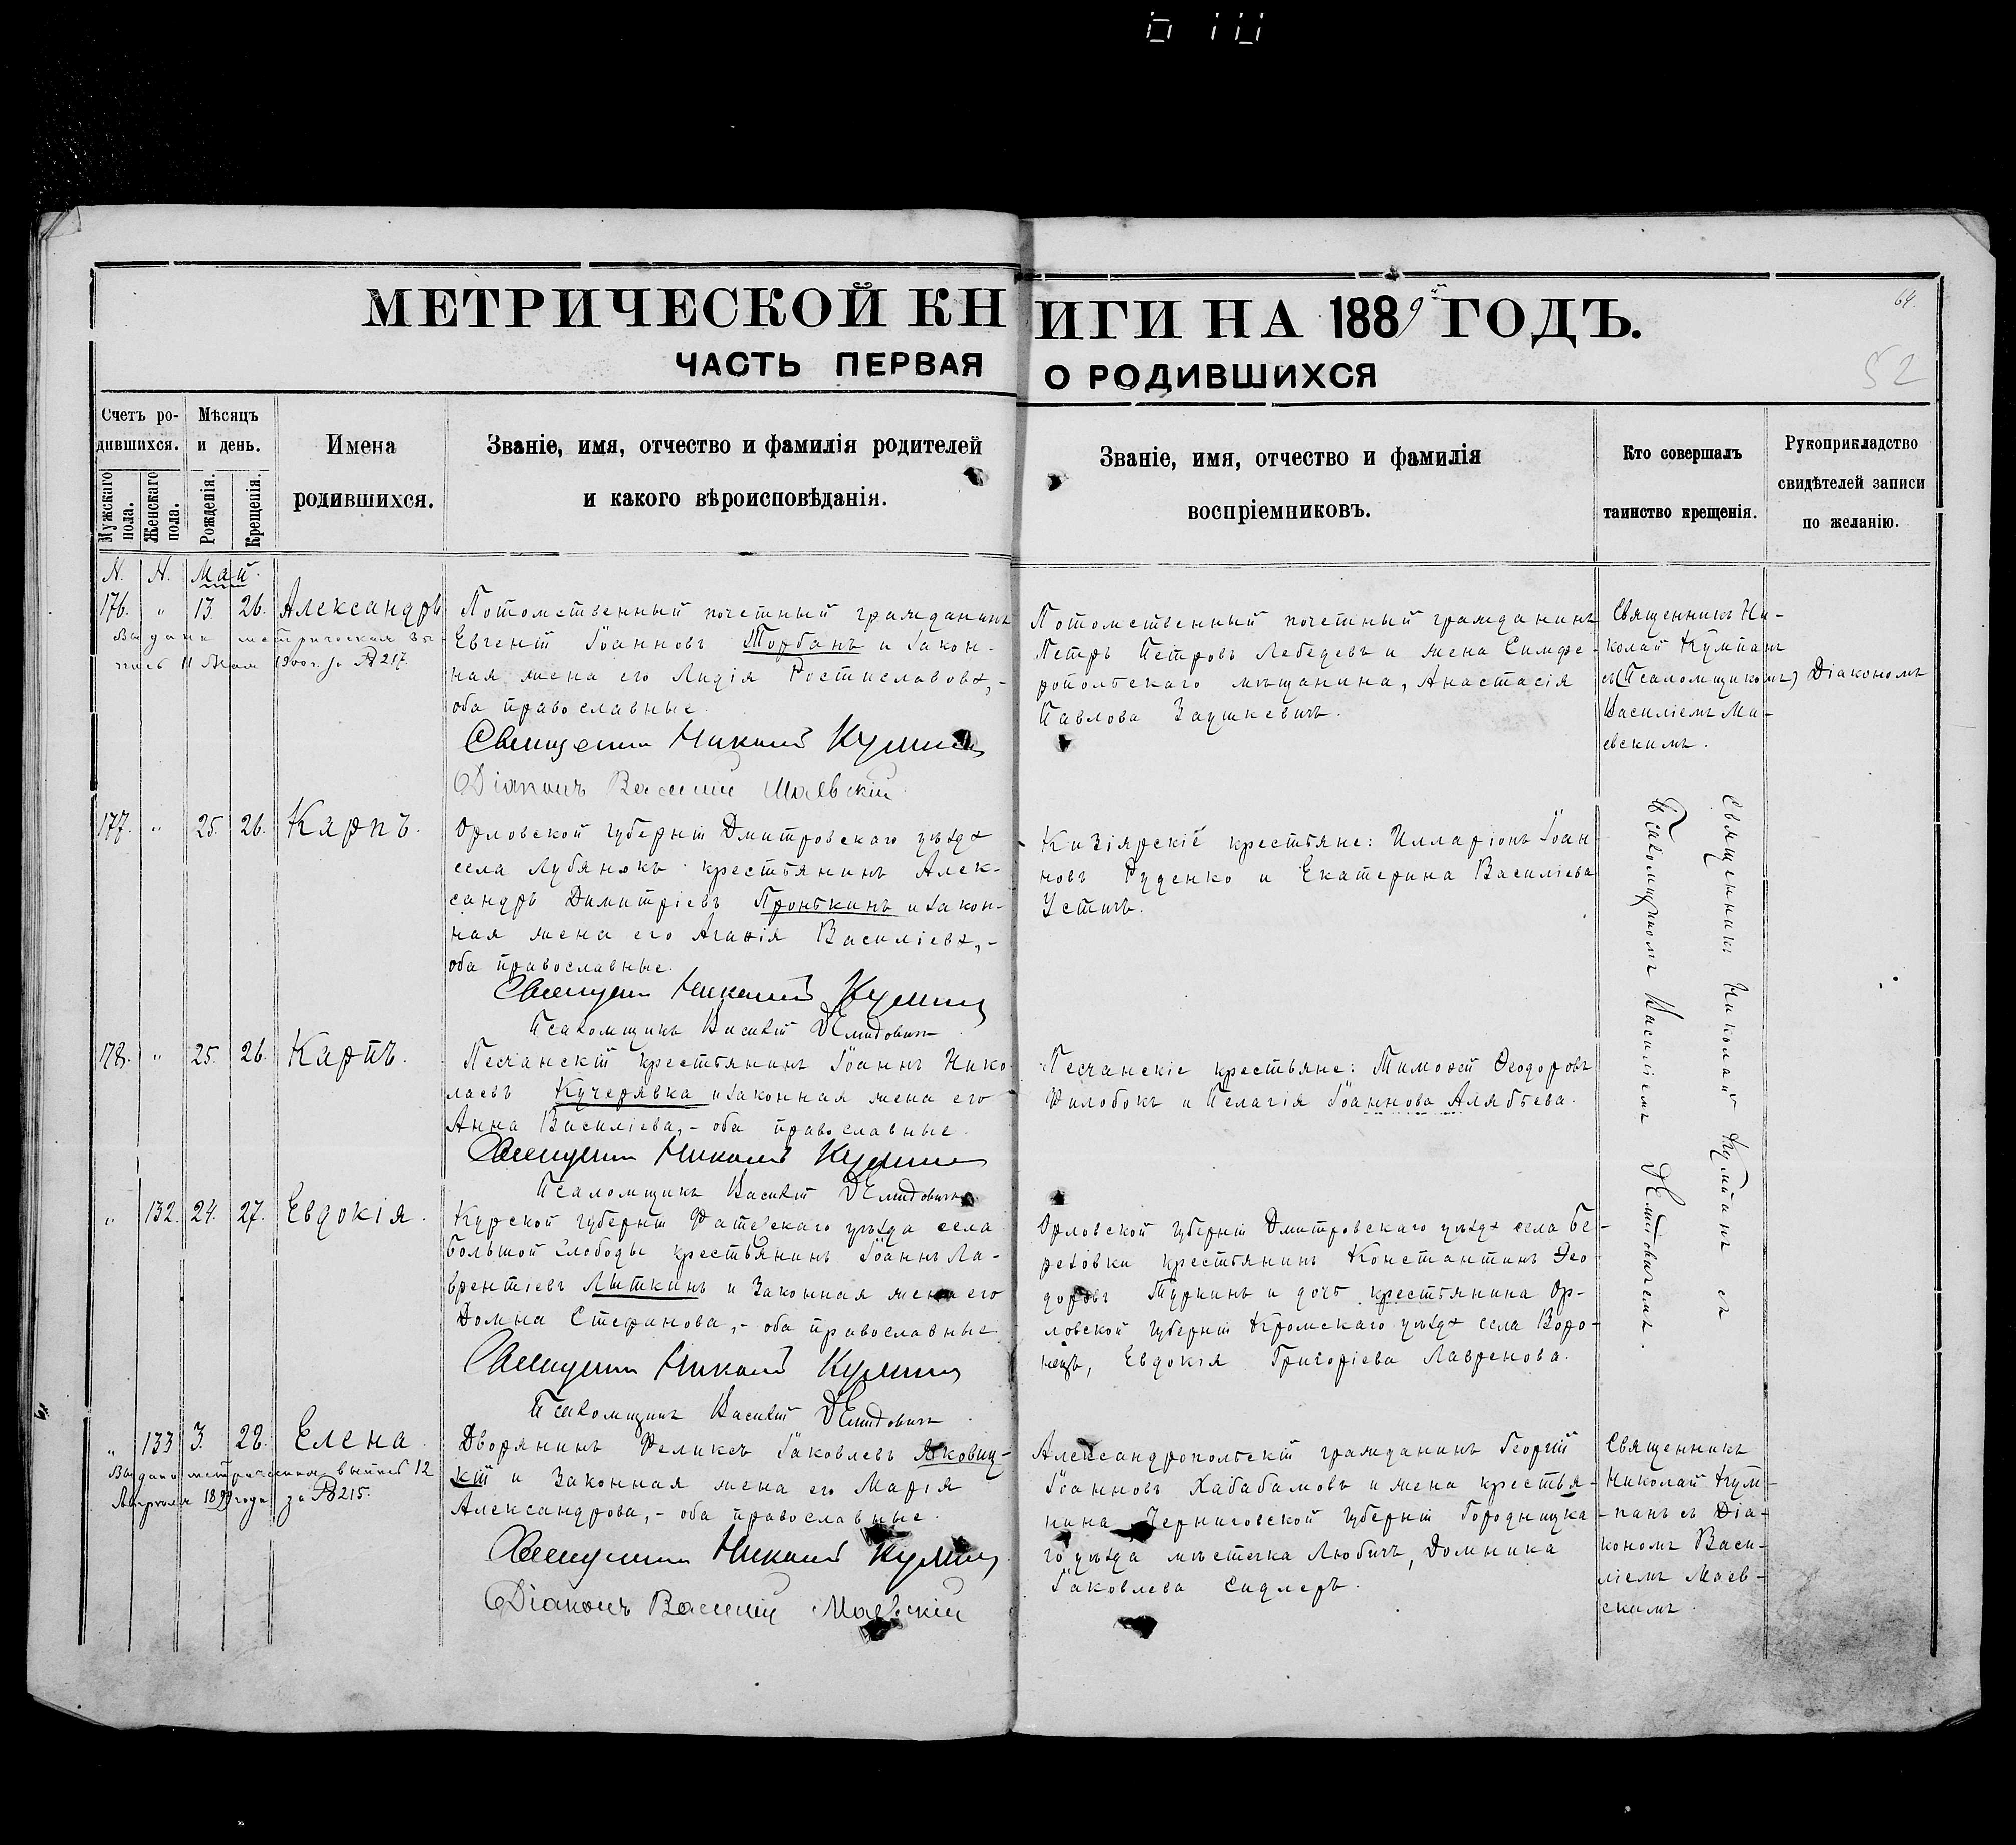 МЕТРИЧЕСКОЙ КНИГИ НА 1889й ГОДЪ.
64.
ЧАСТЬ ПЕРВАЯ О РОДИВШИХСЯ
52
Счетъ ро-
дившихся.
Мужскаго пола.
Женскаго пола.
Мѣсяцъ
и день.
Рожденія.
Крещенія.
Имена
родившихся.
Званіе, имя, отчество и фамилія родителей
и какого вѣроисповѣданія.
Званіе, имя, отчество и фамилія
воспріемниковъ.
Кто совершалъ
таинство крещенія.
Рукоприкладство
свидѣтелей записи
по желанію.
Н. Н. Май.
176. " 13. 26. Александръ
Выдана метрическая вы-
пись 11 1900 г. за № 217.
Потомственный почетный гражданинъ
Евгеній Іоанновъ Торбанъ и закон-
ная жена его Лидія Ростиславова,-
оба православные.
Священникъ Николай Кумпанъ
Діаконъ Василій Маевскій
Потомственный почетный гражданинъ
Петръ Петровъ Лебедевъ и жена Симфе-
ропольскаго мѣщанина, Анастасія
Павлова Заушкевичъ.
Священникъ Ни-
колай Кумпанъ
съ (Псаломщикомъ) Діакономъ
Василіемъ Ма-
евскимъ.
177. " 25. 26. Карпъ.
Орловской губерніи Дмитровскаго уѣзда
села Лубянокъ крестьянинъ Алек-
сандръ Димитріевъ Пронькинъ и закон-
ная жена его Агаѳія Василіева,-
оба православные.
Священникъ Николай Кумпанъ
Псаломщикъ Василій Демидовичъ
Кизіярскіе крестьяне: Илларіонъ Іоан-
новъ Руденко и Екатерина Василіева
Устичъ.
Священникъ Николай Кумпанъ съ
Псаломщикомъ Василіемъ Демидовичемъ.
178. " 25. 26. Карпъ.
Песчанскій крестьянинъ Іоаннъ Нико-
лаевъ Кучерявка и законная жена его
Анна Василіева,- оба православные.
Священникъ Николай Кумпанъ
Псаломщикъ Василій Демидовичъ
Песчанскіе крестьяне: Тимоѳей Ѳеодоровъ
Филобокъ и Пелагія Іоаннова Алябьева.
" 132. 24. 27. Евдокія.
Курской губерніи Фатежскаго уѣзда села
Большой Слободы крестьянинъ Іоаннъ Ла-
врентіевъ Лыткинъ и законная жена его
Домна Стефанова,- оба православные
Священникъ Николай Кумпанъ
Псаломщикъ Василій Демидовичъ
Орловской губерніи Дмитровскаго уѣзда села Бе-
резовки крестьянинъ Константинъ Ѳео-
доровъ Туркинъ и дочь крестьянина Ор-
ловской губерніи Кромскаго уѣзда села Воро-
нецъ, Евдокія Григоріева Лавренова.
" 133 3. 28. Елена.
Выдана метрическая выпись 12
Августа 1899 года за № 215.
Дворянинъ Феликсъ Іаковлевъ Яковиц-
кій и законная жена его Марія
Александрова,- оба православные.
Священникъ Николай Кумпанъ
Діаконъ Василій Маевскій
Александропольскій гражданинъ Георгій
Іоанновъ Хабабамовъ и жена крестья-
нина Черниговской губерніи Городницка-
го уѣзда мѣстечка Любичъ, Домника
Іаковлева Сидлеръ.
Священникъ
Николай Кум-
панъ съ Діа-
кономъ Васи-
ліемъ Маев-
скимъ.